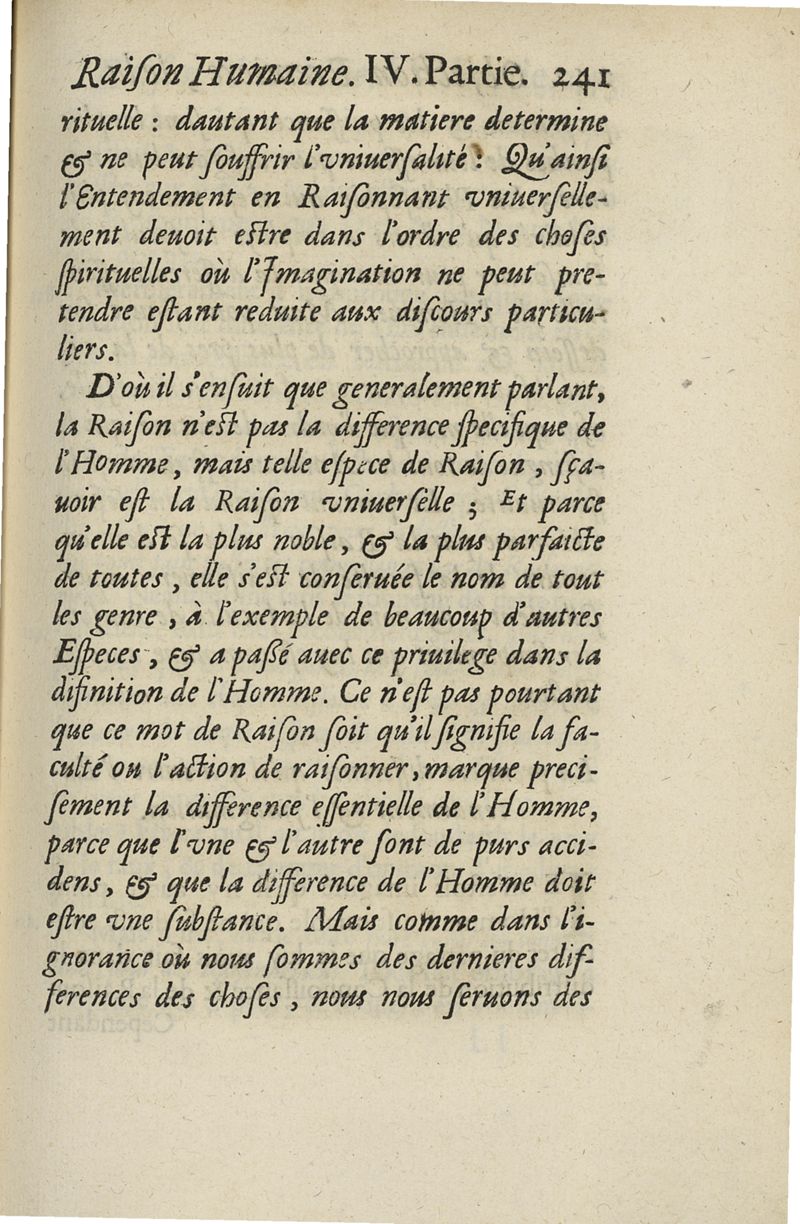 Raiſon Humaine. IV. Partie. 241
rituelle : dautant que la matiere determine
& ne peut ſouffrir l'vniuerſalité : Qu'ainſi
l'Entendement en Raiſonnant vniuerſelle-
ment deuoit eſtre dans l'ordre des choſes
ſpirituelles où l'Imagination ne peut pre-
tendre eſtant reduite aux diſcours particu-
liers.
D'où il s'enſuit que generalement parlant,
la Raiſon n'eſt pas la difference ſpecifique de
l'Homme, mais telle eſpece de Raiſon, ſça-
uoir eſt la Raiſon vniuerſelle ; Et parce
qu'elle eſt la plus noble, & la plus parfaicte
de toutes, elle s'eſt conſeruée le nom de tout
les genre, à l'exemple de beaucoup d'autres
Eſpeces, & a paßé auec ce priuilege dans la
difinition de l'Homme. Ce n'eſt pas pourtant
que ce mot de Raiſon ſoit qu'il ſignifie la fa-
culté ou l'action de raiſonner, marque preci-
ſement la difference eſſentielle de l'Homme,
parce que l'vne & l'autre ſont de purs acci-
dens, & que la difference de l'Homme doit
eſtre vne ſubſtance. Mais comme dans l'i-
gnorance où nous ſommes des dernieres dif-
ferences des choſes, nous nous ſeruons des